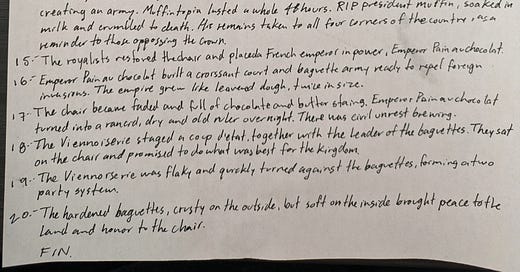 creating an army. Muffintopia lasted a whole 48 hours. RIP president muffin, soaked in
milk and crumbled to death. His remains taken to all four corners of the country, as a
reminder to those opposing the crown.
15.- The royalists restored the chair and placed a French emperor in power, Emperor Pain au chocolat.
16.- Emperor Pain au chocolat built a croissant court and baguette army ready to repel foreign
invasions. The empire grew like leavened dough, twice in size.
17.- The chair became faded and full of chocolate and butter stains. Emperor Pain au chocolat
turned into a rancid, dry and old ruler overnight. There was civil unrest brewing.
18.- The Viennoiserie staged a coup d'etat, together with the leader of the baguettes. They sat
on the chair and promised to do what was best for the kingdom.
19.- The Viennoiserie was flaky and quickly turned against the baguettes, forming a two
party system.
20.- The hardened baguettes, crusty on the outside, but soft on the inside brought peace to the
land and honor to the chair.
FIN.